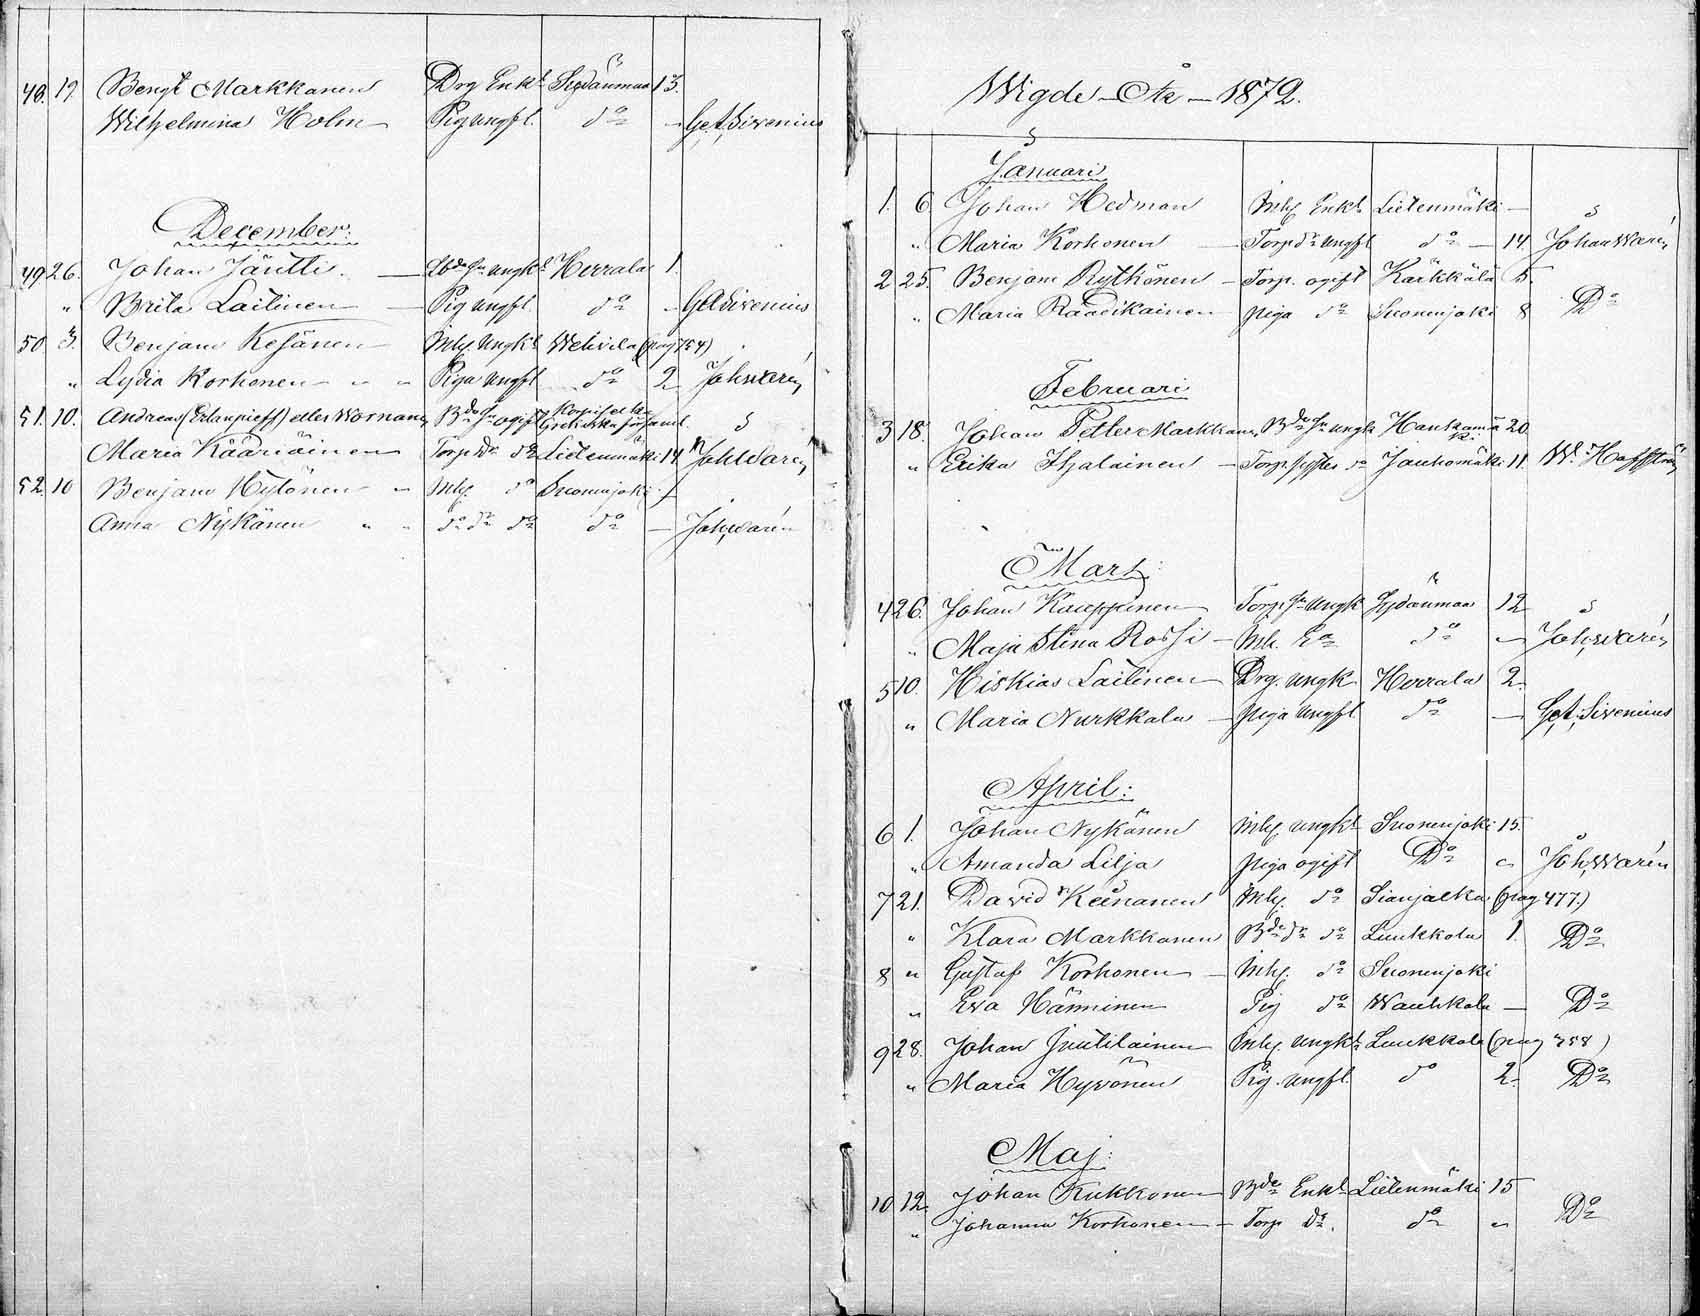 48. 19. Bengt Markkanen Drg Enkl Sydänmaa 13.
Wilhelmina Holm Pig ungfl. do — G. A. Sirenius
December:
49 26. Johan Jäntti. — ungk Herrala 1.
" Brita Laitinen — Pig ungfl. do " G A Sirenius
50. 3. Benjam Kesänen — Inhy. Ungkl Wehvilä (pag 754)
" Lydia Korhonen — " " Piga ungfl do 2 Joh. Warén
51. 10. Andreas (Erlanpieff) eller Wornanen Bde sn ogift Grekiska församl.
Maria Kääriäinen Torp dr do Lietenmäki 14 Joh. Warén
52. 10 Benjam Hytönen " Inhy. do Suonenjoki 1
Anna Nykänen " " do dr do do — Joh. Warén
Wigde År 1872.
Januari
1. 6. Johan Hedman Inhy Enkl Lietenmäki —
" Maria Korhonen — Torp dr ungfl do — 14. Johan Warén
2 25. Benjam Rytkönen — Torp. ogift Kärkkälä 5.
" Maria Räädikäinen piga do Suonenjoki 8 Do
Februari
3 18. Johan Petter Markkanen Bde sn ungk Hankamäki 20
" Erika Hjalainen — Torp syster do Jauhomäki 11. W. Hoffström
Mart:
4 26. Johan Kauppinen Torp sn ungk Sydänmaa 12
" Maja Stina Rossi — Inh. Ea do " Joh. Warén
5 10. Hiskias Laitinen — Drg. ungk Herrala 2.
" Maria Nurkkala — piga ungfl do — G. A. Sirenius
April:
6 1. Johan Nykänen Inhy ungkl Suonenjoki 15.
" Amanda Lilja piga ogift Do " Joh. Warén
7 21. Dawid Keinänen Inhy. do Sianjalka (pag 477.)
" Klara Markkanen Bde dr do Luukkola 1. Do
8 " Gustaf Korhonen — Inhy. do Suonenjoki
" Eva Hänninen Pig do Wauhkola — Do
9 28. Johan Juutilainen Inhy. Ungkl Luukkola (pag 758)
" Maria Hyvönen Pig. ungfl. do 2. Do
Maj:
10 12. Johan Kukkonen Bde Enkl Lietenmäki 15
" Johanna Korhonen — Torp Dr. do " Do